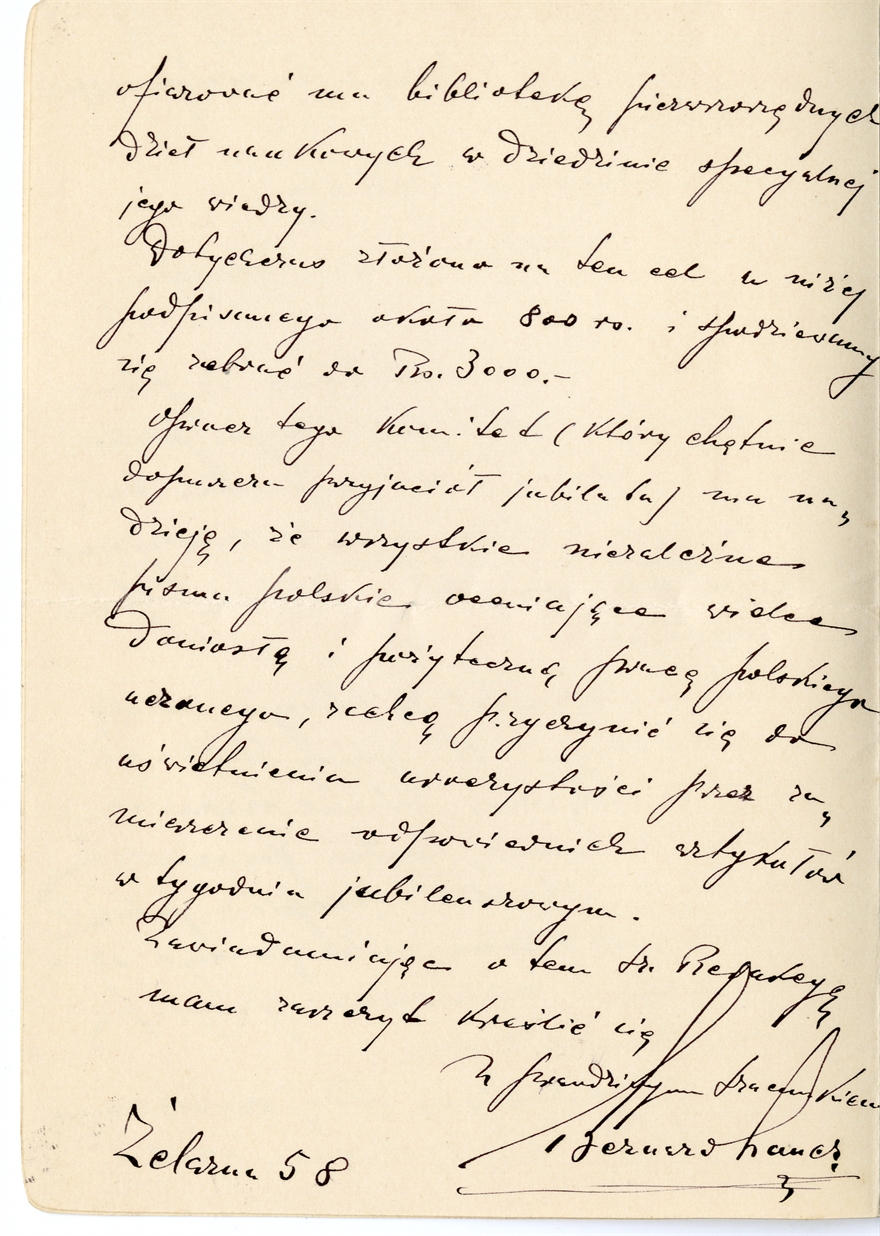 ofiarować mu bibliotekę pierwszorzędnych
dzieł naukowych w dziedzinie specyalnej
jego wiedzy.
Dotychczas złożono na ten cel u niżej
podpisanego około 800 rs. i spodziewamy
się zebrać do Rs. 3000.-
Oprócz tego Komitet (który chętnie
dopuszcza przyjaciół jubilata) ma na„
dzieję, że wszystkie niezależne
pisma polskie oceniające wielce
doniosłą i pożyteczną pracę polskiego
uczonego, zechcą przyczynić się do
uświetnienia uroczystości przez za„
mieszczenie odpowiednich artykułów
w tygodniu jubileuszowym.
Zawiadamiając o tem Sz. Redakcyę
mam zaszczyt kreślić się
Z prawdziwym szacunkiem
Bernard
Żelazna 58